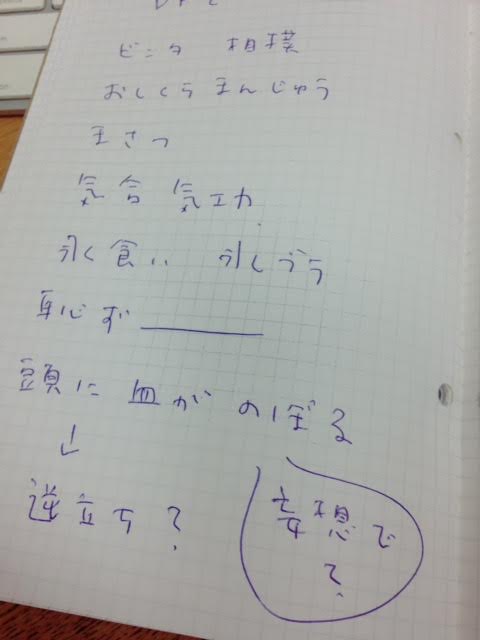 ビンタ 相撲
おしくらまんじゅう
まさつ
気合 気功
食い
恥ず______
頭に血がのぼる
↓
逆立ち？
想で
？